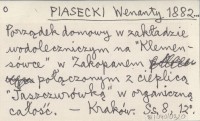 PIASECKI Wenanty 1882.
Porządek domowy w zakładzie
wodoleczniczym na "Klemen-
sówce" w Zakopanem
połączonym z cieplicą
"Jaszczurówką" w organiczną
całość. — Kraków. Ss, 8, 12°.